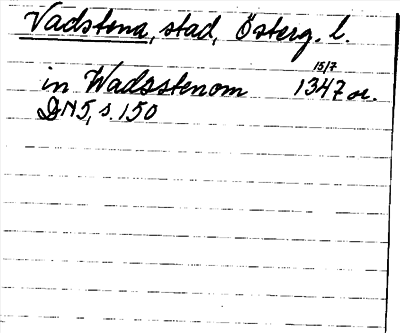 Vadstena, stad, Österg. l.
in Wadsstenom 15/7 1347 or.
DN5, s. 150